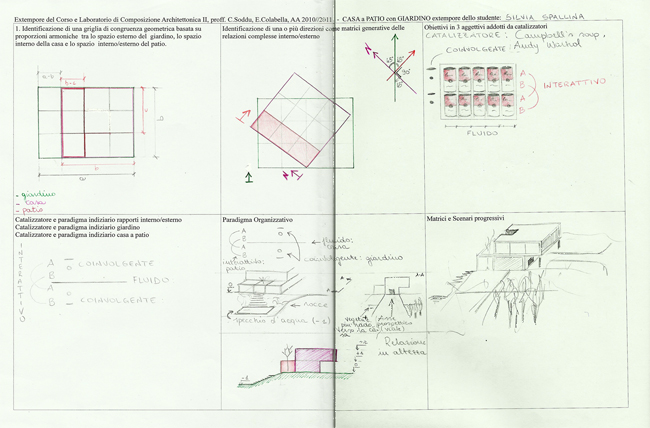 Extempore del Corso e Laboratorio di Composizione Architettonica II, proff. C.Soddu, E.Colabella, AA 2010/2011. - CASA a PATIO con GIARDINO extempore dello studente: SILVIA SPALLINA
1. Identificazione di una griglia di congruenza geometrica basata su
proporzioni armoniche tra lo spazio esterno del giardino, lo spazio
interno della casa e lo spazio interno/esterno del patio.
- giardino
- casa
- patio
Identificazione di una o più direzioni come matrici generative delle
relazioni complesse interno/esterno
45°
45°
30°
Obiettivi in 3 aggettivi addotti da catalizzatori
CATALIZZATORE: Campbell's soup,
Andy Warhol
COINVOLGENTE
A
B
A
B
INTERATTIVO
FLUIDO
Catalizzatore e paradigma indiziario rapporti interno/esterno
Catalizzatore e paradigma indiziario giardino
Catalizzatore e paradigma indiziario casa a patio
INTERATTIVO
A
B
COINVOLGENTE
FLUIDO
A
B
COINVOLGENTE
Paradigma Organizzativo
A
B
A
B
fluido:
casa
interattivo:
patio
coinvolgente: giardino
rocce
specchio d'acqua (-2)
Asse
prospettico
Relazione
in altezza
Matrici e Scenari progressivi